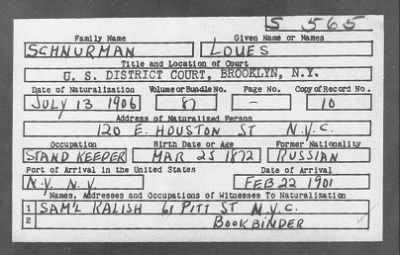 S 565
Family Name Given Name or Names
SCHNURMAN LOUES
Title and Location of Court
U. S. DISTRICT COURT, BROOKLYN, N.Y.
Date of Naturalization Volume or Bundle No. Page No. Copy of Record No.
JULY 13 1906 87 - 10
Address of Naturalized Person
120 E. HOUSTON ST N.Y.C.
Occupation Birth Date or Age Former Nationality
STAND KEEPER MAR 25 1872 RUSSIAN
Port of Arrival in the United States Date of Arrival
N.Y. N.Y. FEB 22 1901
Names, Addresses and Occupations of Witnesses To Naturalization
1 SAM'L KALISH 61 PITT ST N.Y.C.
2 BOOKBINDER